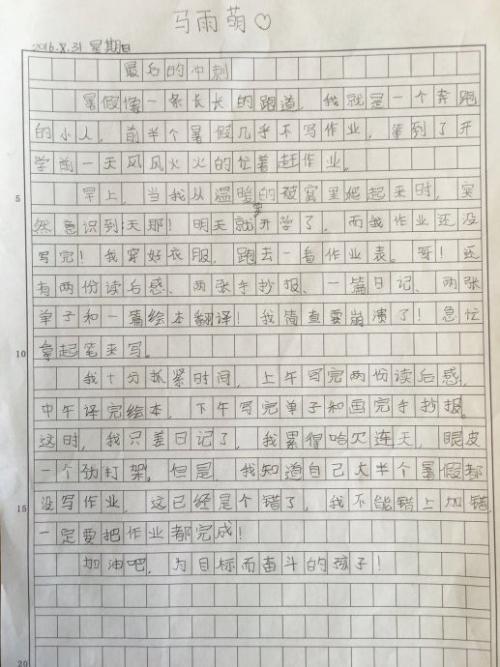 马雨萌♡
2016.8.31 星期日
最后的冲刺
暑假像一条长长的跑道，我就是一个奔跑
的小人，前半个暑假几乎不写作业，等到了开
学前一天风风火火的忙着赶作业。
早上，当我从温暖的被窝里爬起来时，突
然意识到:天那！明天就要开学了，而我作业还没
写完！我穿好衣服，跑去一看作业表。呀！还
有两份读后感、两张手抄报、一篇日记、两张
5
单子和一篇绘本翻译！我简直要崩溃了！急忙
10
拿起笔来写。
我十分抓紧时间，上午写完两份读后感，
中午译完绘本，下午写完单子和画完手抄报。
这时，我只差日记了，我累得哈欠连天，眼皮
一个劲打架。但是，我知道自己大半个暑假都
15
没写作业，这已经是个错了，我不能错上加错，
一定要把作业都完成！
加油吧，为目标而奋斗的孩子！
20